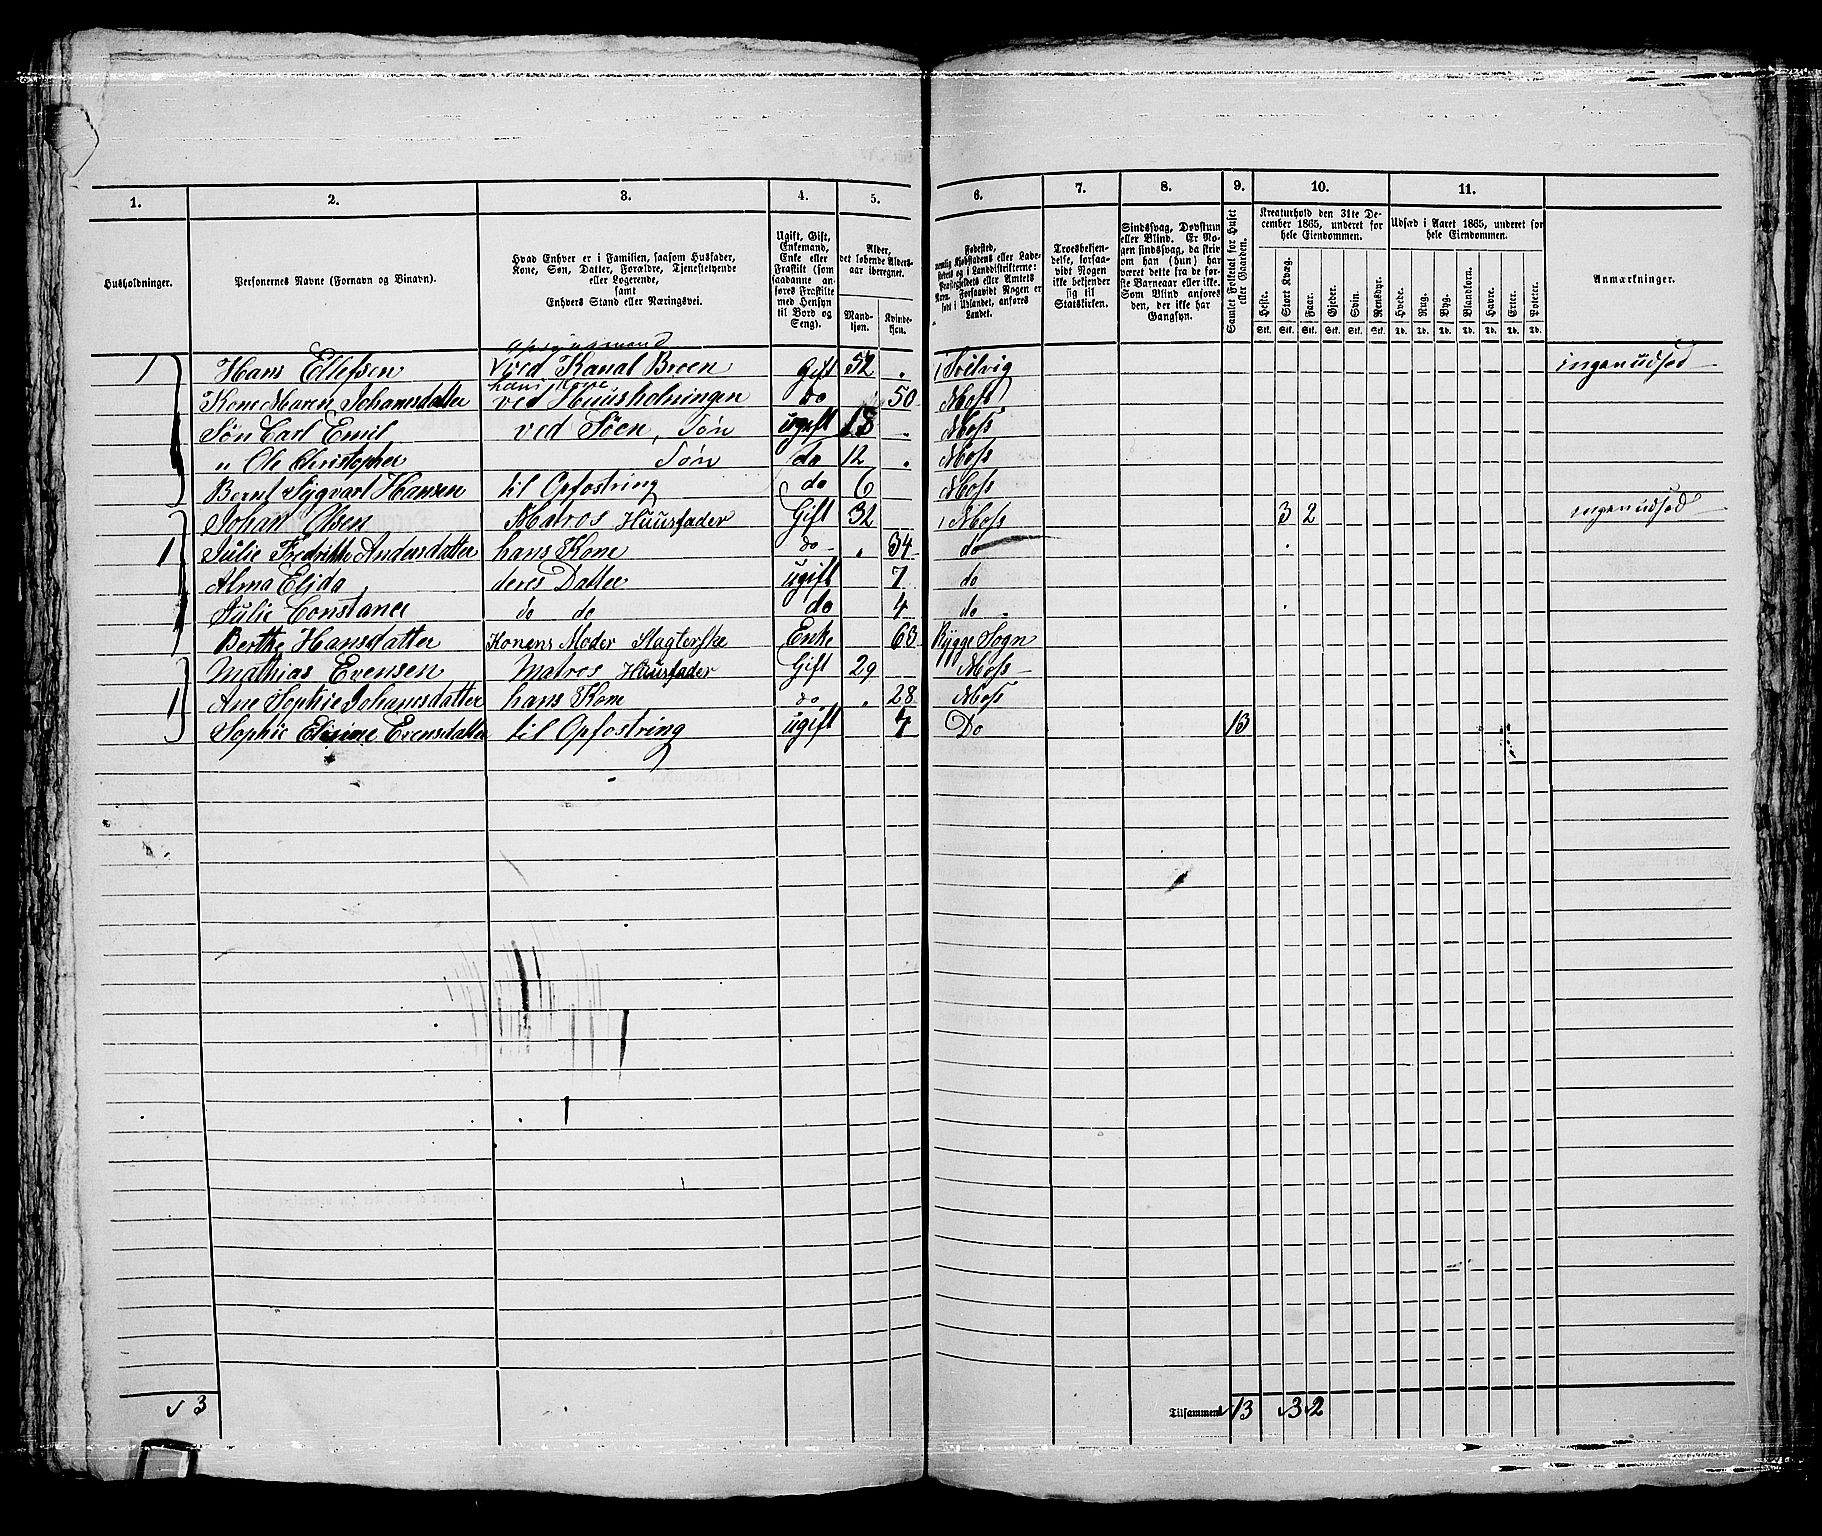 1. 2. 3. 4. 5. 6. 7. 8. 9. 10. 11.
Husholdninger.
Personernes Navne (Fornavn og Binavn).
Hvad Enhver er i Familien, saasom Husfader,
Kone, Søn, Datter, Forældre, Tjenestetyende
eller Logerende,
samt
Enhvers Stand eller Næringsvei.
Ugift, Gift,
Enkemand,
Enke eller
Fraskilt (som
saadanne an-
føres Fraskilte
med Hensyn
til Bord og
Seng).
Alder,
det løbende Alders-
aar iberegnet.
Mand-
kjøn.
Kvinde-
kjøn.
Fødested,
nemlig Kjøbstadens eller Lade-
stedets og i Landdistrikterne:
Præstegjeldets eller Amtets
Navn. Forsaavidt Nogen er
født i Udlandet, anføres
Landet.
Troesbekjen-
delse, forsaa-
vidt Nogen
ikke bekjender
sig til
Statskirken.
Sindssvag, Døvstum
eller Blind. Er No-
gen sindssvag, da skriv
om han (hun) har
været dette fra de før-
ste Barneaar eller ikke.
Som Blind anføres
den, der ikke har
Gangsyn.
Samlet Folketal for Huset
eller Gaarden.
Kreaturhold den 31te De-
cember 1865, underet for
hele Eiendommen.
Heste. Stort Kvæg. Faar. Gjeder. Svin. Rensdyr.
Stk. Stk. Stk. Stk. Stk. Stk.
Udsæd i Aaret 1865, underet for
hele Eiendommen.
Hvede. Rug. Byg. Blandkorn. Havre. Erter. Poteter.
Td. Td. Td. Td. Td. Td. Td.
Anmærkninger.
Opsynsmand
1 Hans Ellefsen ved Kanal Broen Gift 52 " 1 Svelvig ingen udsæd
hans Kone
Kone Maren Johannsdatter ved Huusholningen do 50 Moss
Søn Carl Emil ved Søen, Søn ugift 18 " Moss
" Ole Christopher Søn do 12 " Moss
Bernt Sigvart Hansen til Opfostring do 6 Moss
Johan Olsen Matros Huusfader Gift 32 1 Moss 3 2 ingen udsæd
1 Julie Fredrikke Andersdatter hans Kone do " 34 do
Alma Elida deres Datter ugift 7 do
Julie Constance do do do 4 do
Berthe Hansdatter Konens Moder Slagterske Enke 63 Rygge Sogn
Mathias Evensen Matros Huusfader Gift 29 Moss
1 Ane Sophie Johannsdatter hans Kone do " 28 Moss
Sophie Elisine Evensdatter til Opfostring ugift 7 Do 13
3 Tilsammen 13 3 2